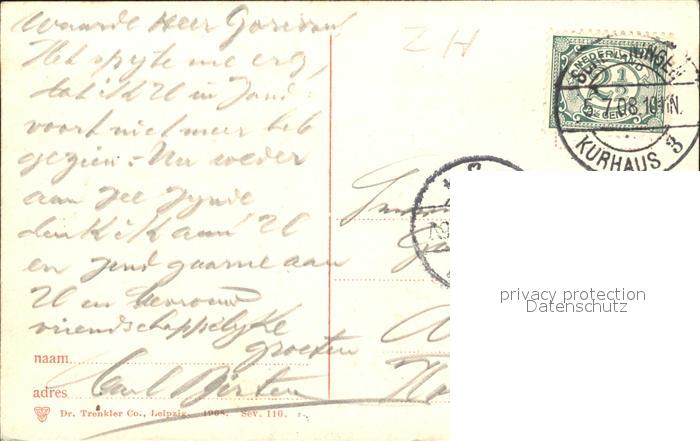 Waarde Heer
Het spijte me erg,
dat ik U in Zand-
voort niet meer heb
gezien. Nu weder
aan Zee zynde
denk ik aan U
en zend gaarne aan
U en Mevrouw
vriendschappelyke
groeten
naam
adres Carl
Dr. Trenkler Co., Leipzig. 1908. Sev. 110.
ZH
NEDERLAND
2½
CENT
5 7.08 10-11N.
KURHAUS 3
privacy protection
Datenschutz